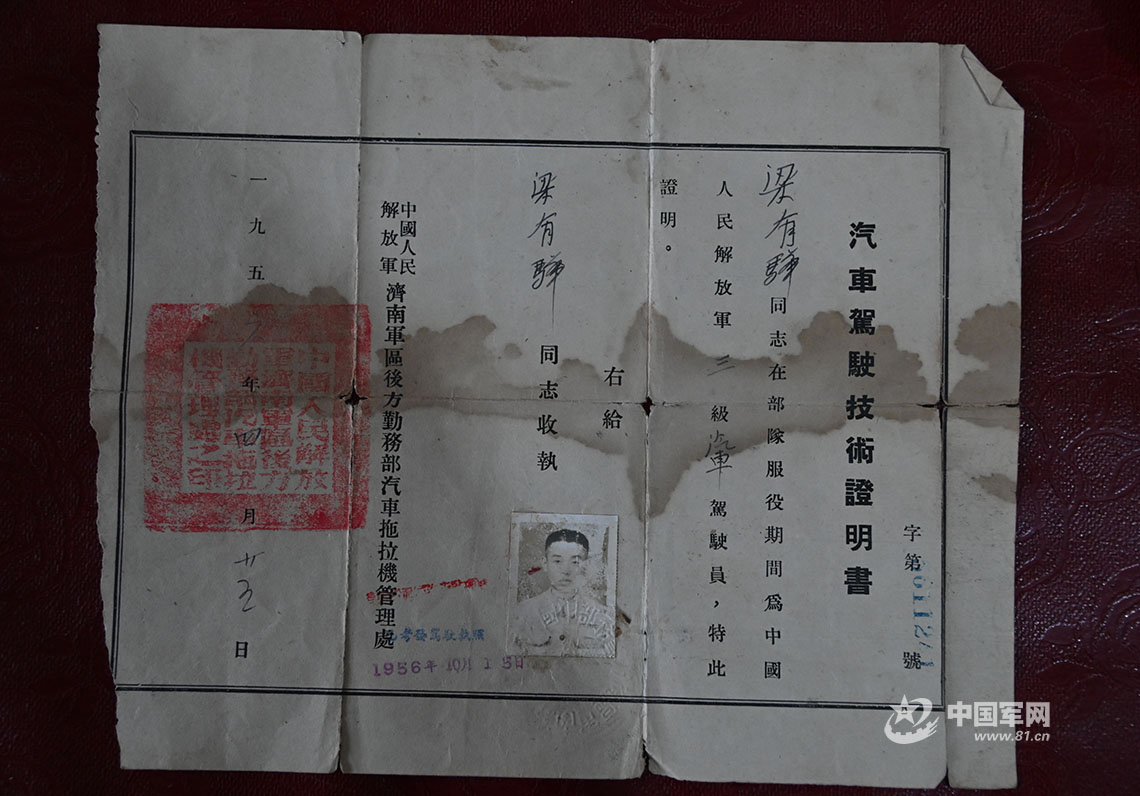 汽車駕駛技術證明書
字第
號
梁有驊同志在部隊服役期間爲中國
人民解放軍三級汽車駕駛員，特此
證明。
右給
梁有驊同志收執
中國人民
解放軍
濟南軍區後方勤務部汽車拖拉機管理處
1956年10月15日
一九五年四月廿五日
中國人民解放
軍濟南軍區後方
機管理處之印
中国军网
www.81.cn